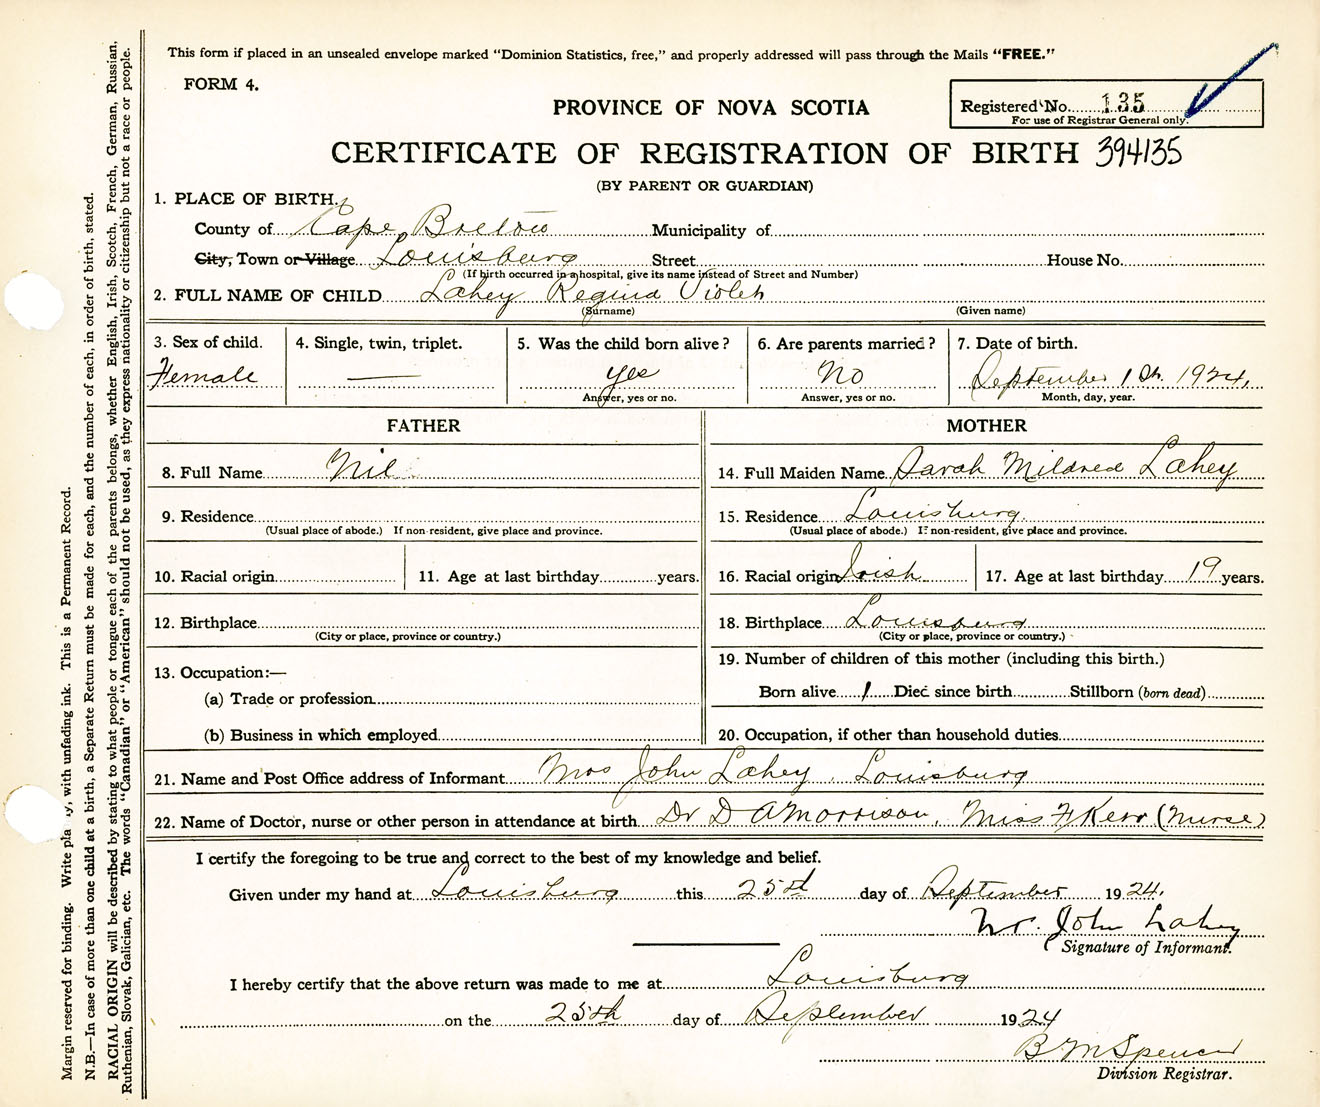 This form if placed in an unsealed envelope marked "Dominion Statistics, free," and properly addressed will pass through the Mails "FREE."
FORM 4.
Registered No. 135
For use of Registrar General only.
PROVINCE OF NOVA SCOTIA
CERTIFICATE OF REGISTRATION OF BIRTH 394135
(BY PARENT OR GUARDIAN)
1. PLACE OF BIRTH.
County of Cape Breton Municipality of
City, Town or Village Louisburg Street House No.
(If birth occurred in a hospital, give its name instead of Street and Number)
2. FULL NAME OF CHILD Lahey Regina Violet
(Surname) (Given name)
3. Sex of child. 4. Single, twin, triplet. 5. Was the child born alive? 6. Are parents married? 7. Date of birth.
Female — yes No September 1st. 1924.
Answer, yes or no. Answer, yes or no. Month, day, year.
FATHER
8. Full Name Nil
9. Residence
(Usual place of abode.) If non-resident, give place and province.
10. Racial origin 11. Age at last birthday years.
12. Birthplace
(City or place, province or country.)
13. Occupation:—
(a) Trade or profession
(b) Business in which employed
MOTHER
14. Full Maiden Name Sarah Mildred Lahey
15. Residence Louisburg
(Usual place of abode.) If non-resident, give place and province.
16. Racial origin Irish 17. Age at last birthday 19 years.
18. Birthplace Louisburg
(City or place, province or country.)
19. Number of children of this mother (including this birth.)
Born alive 1 Died since birth Stillborn (born dead)
20. Occupation, if other than household duties
21. Name and Post Office address of Informant Mrs John Lahey. Louisburg
22. Name of Doctor, nurse or other person in attendance at birth Dr D A Morrison, Miss F Kerr (Nurse)
I certify the foregoing to be true and correct to the best of my knowledge and belief.
Given under my hand at Louisburg this 25th day of September 1924.
John Lahey
Signature of Informant.
I hereby certify that the above return was made to me at Louisburg
on the 25th day of September 1924
B M Spencer
Division Registrar.
Margin reserved for binding. Write plainly, with unfading ink. This is a Permanent Record.
N.B.—In case of more than one child at a birth, a Separate Return must be made for each, and the number of each, in order of birth, stated.
RACIAL ORIGIN will be described by stating to what people or tongue each of the parents belongs, whether English, Irish, Scotch, French, German, Russian,
Ruthenian, Slovak, Galician, etc. The words "Canadian" or "American" should not be used, as they express nationality or citizenship but not a race or people.